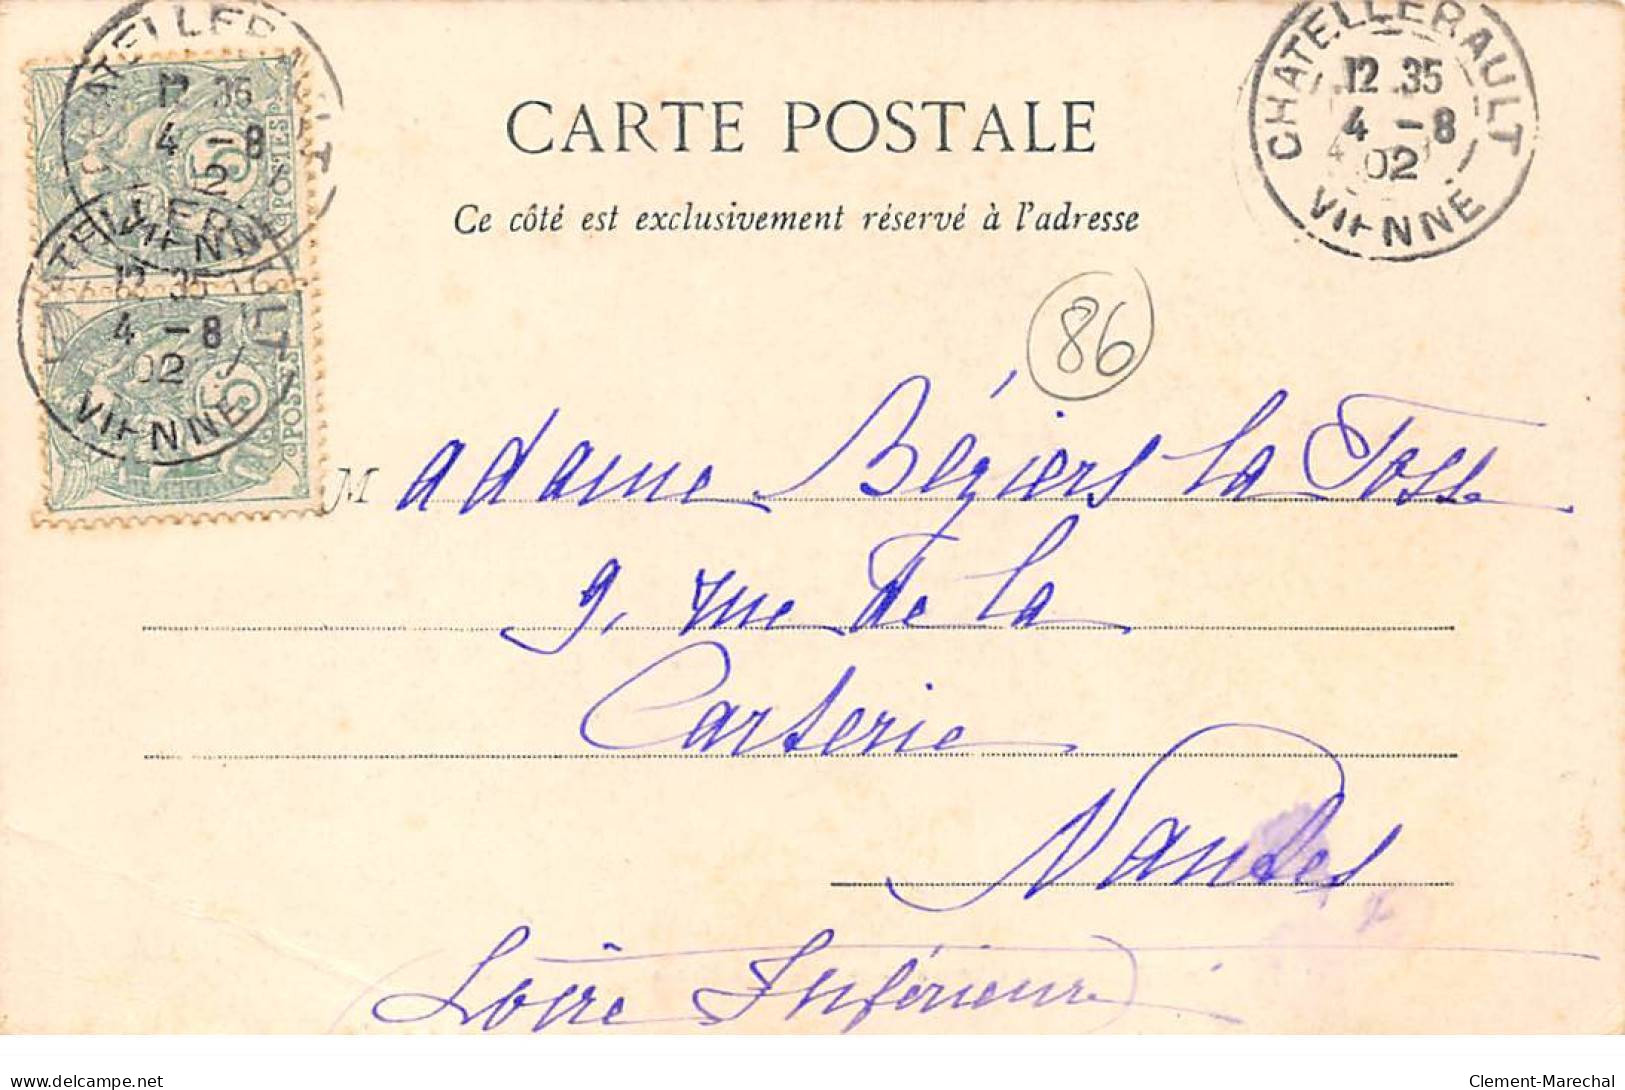 CHATELLERAULT
12 35
4 - 8
02
VIENNE
5
POSTES
CHATELLERAULT
12 35
4 - 8
02
VIENNE
5
POSTES
CHATELLERAULT
12 35
4 - 8
02
VIENNE
CARTE POSTALE
Ce côté est exclusivement réservé à l'adresse
86
Madame Béziers la Fosse
9, rue de la
Carterie
Nantes
Loire Inférieure
delcampe.net
Clement-Marechal